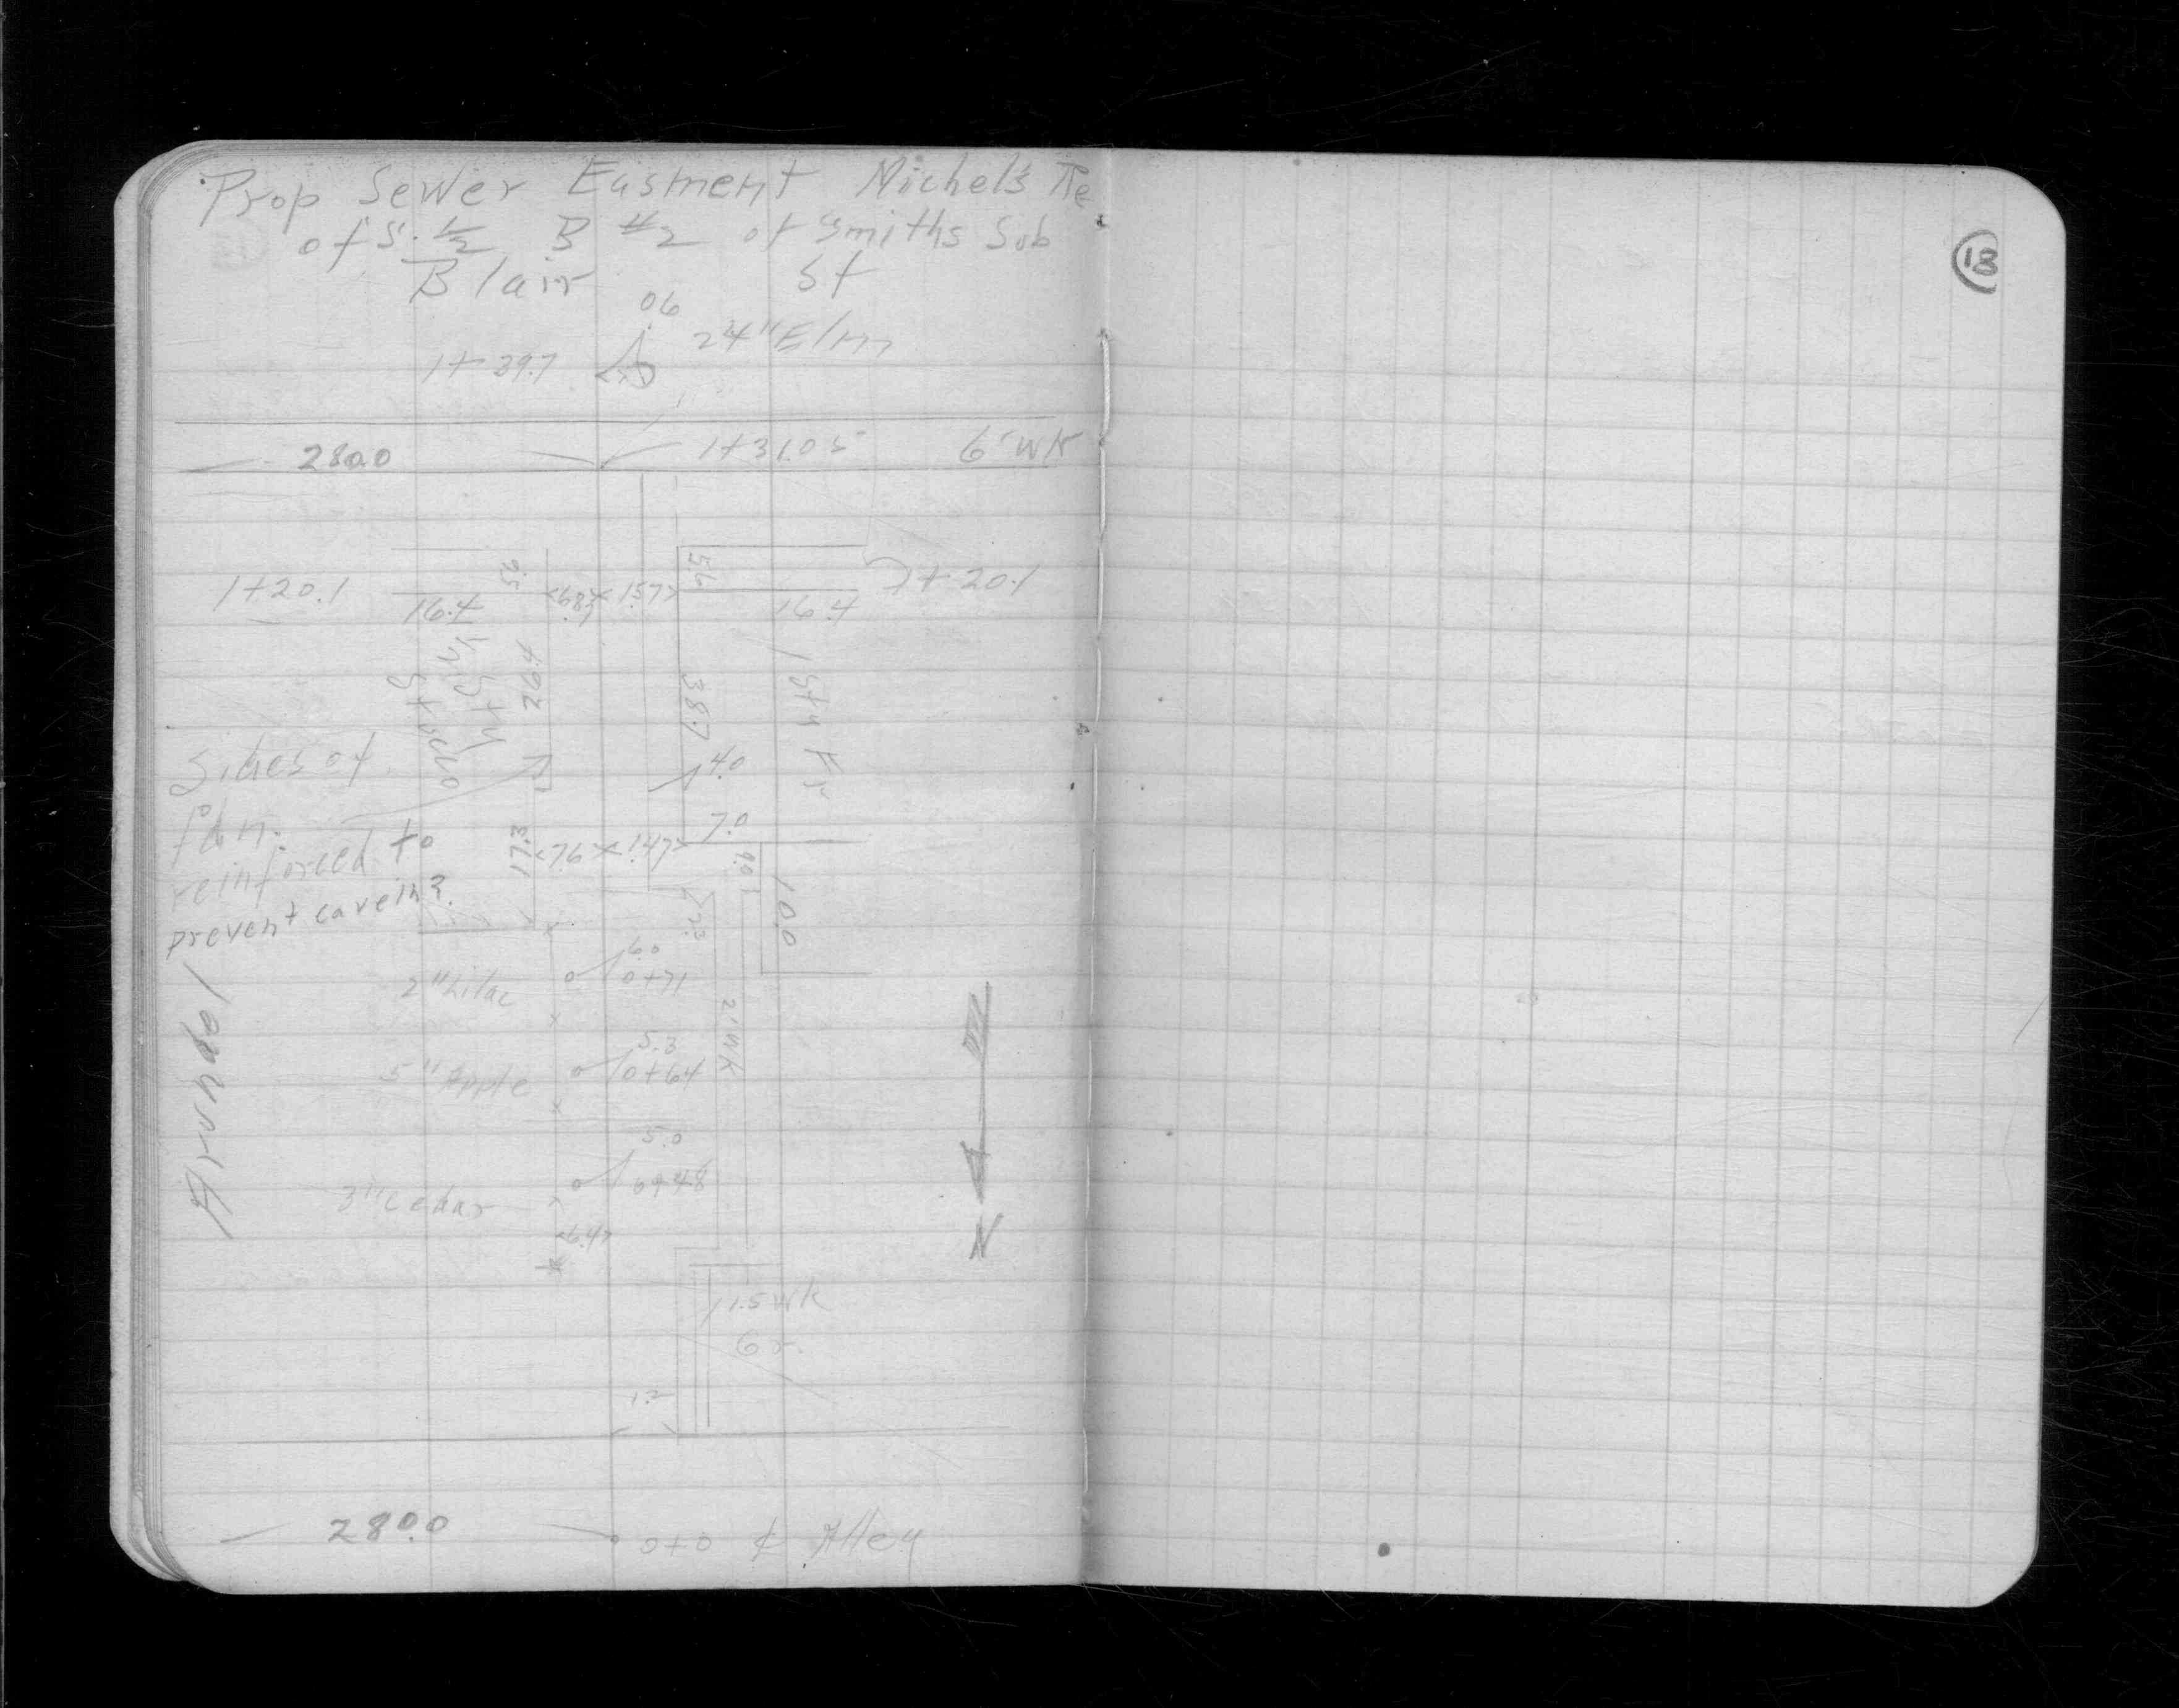 Prop Sewer Easment Nichel's Re
of S. 1/2 B #2 of Smiths Sub
Blair St
06
24" Elm
1+39.7
280.0
1+31.05
6' WK
1+20.1
9.5
5.6
1+20.1
16.4
<6.8>
<15.7>
16.4
1 1/2 Sty
Stucco
26.4
38.7
1 Sty Fr
Sides of
fdn.
reinforced to
prevent cavein?
4.0
7.0
17.3
<7.6>
<14.7>
9.0
10.0
2.2
6.0
2" Lilac
0+71
2' WK
5.3
5" Apple
0+64
5.0
3" Cedar
0+48
<6.4>
Arundel
N
1.5 WK
1.2
280.0
0+0 ₵ Alley
13